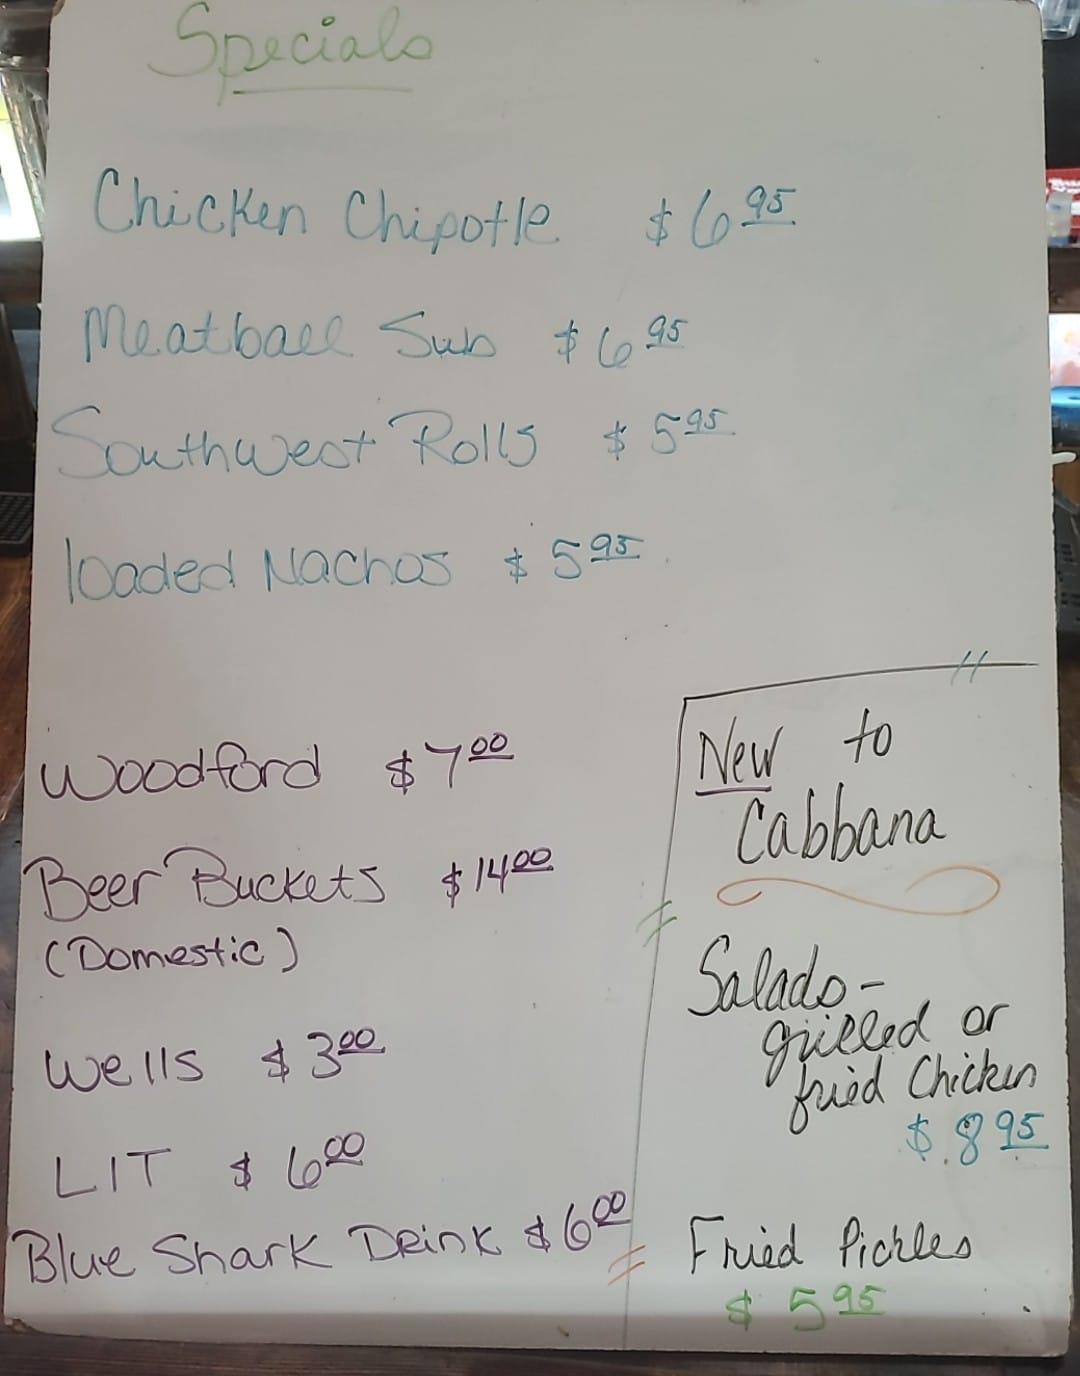 Specials
Chicken Chipotle $6 95
Meatball Sub $6 95
Southwest Rolls $5 95
loaded Nachos $5 95
Woodford $7 00
Beer Buckets $14 00
(Domestic)
Wells $3 00
LIT $6 00
Blue Shark Drink $6 00
New to
Cabbana
Salads-
grilled or
fried Chicken
$8 95
Fried Pickles
$5 95